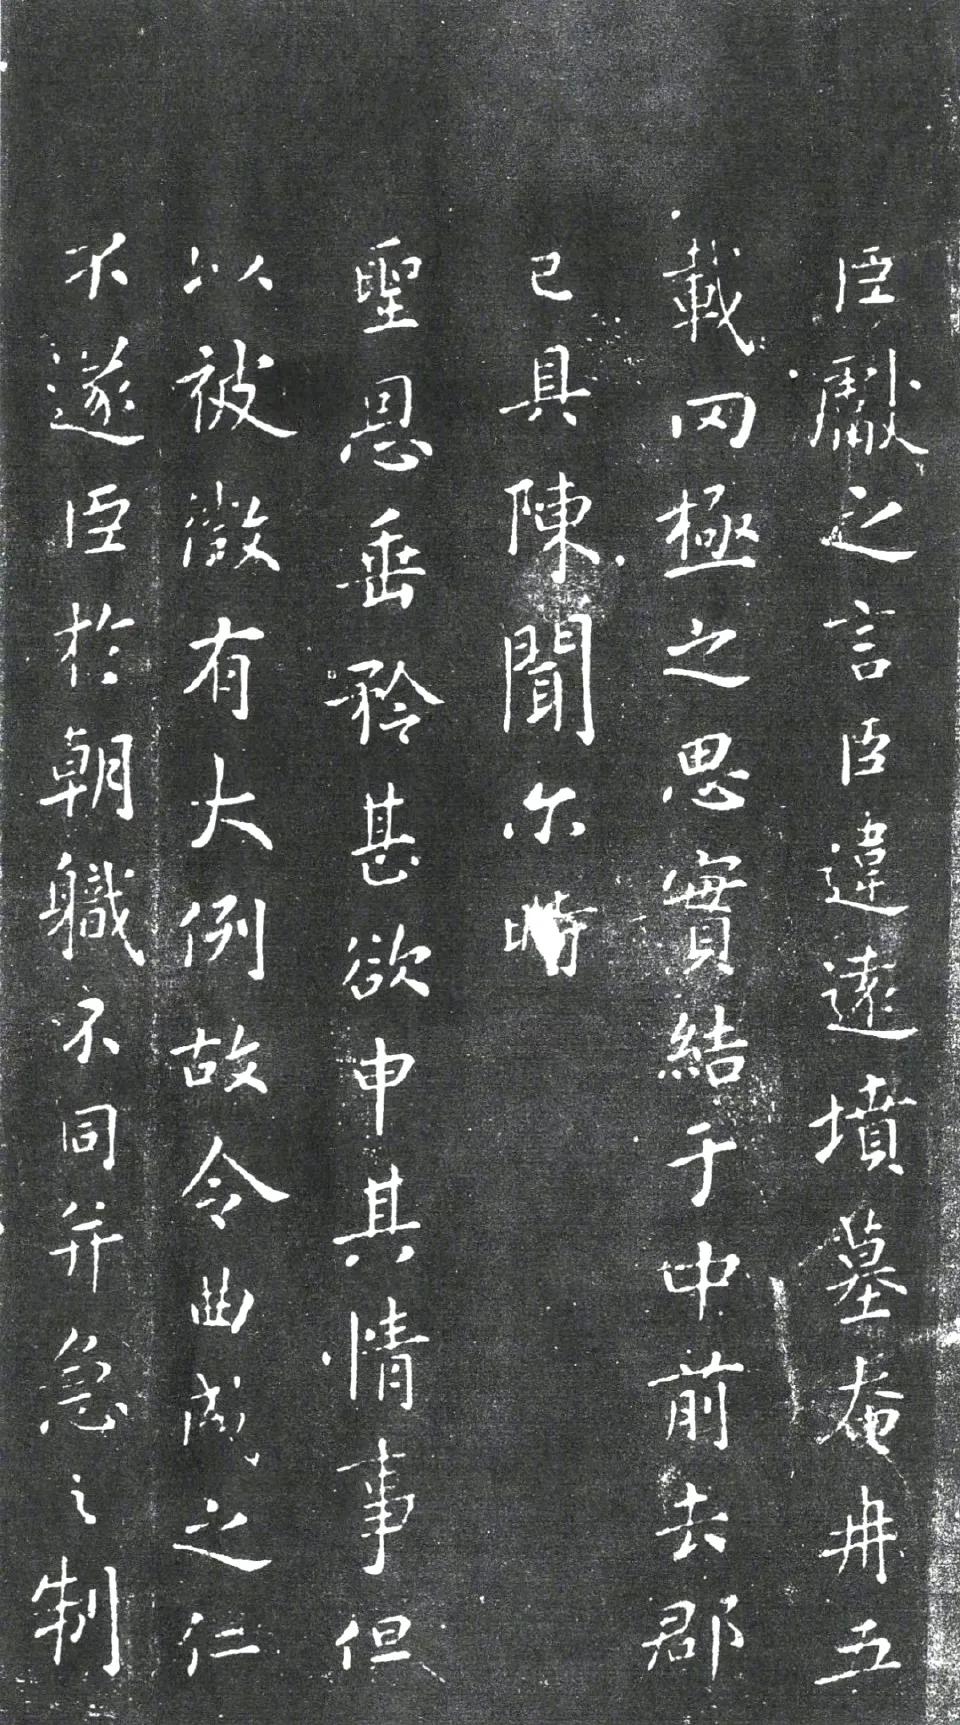 臣獻之言臣違遠墳墓奄冉五
載罔極之思實結于中前去郡
已具陳聞尒時
聖恩垂矜甚欲申其情事但
以被徵有大例故令曲成之仁
不遂臣於朝職不同并急之制